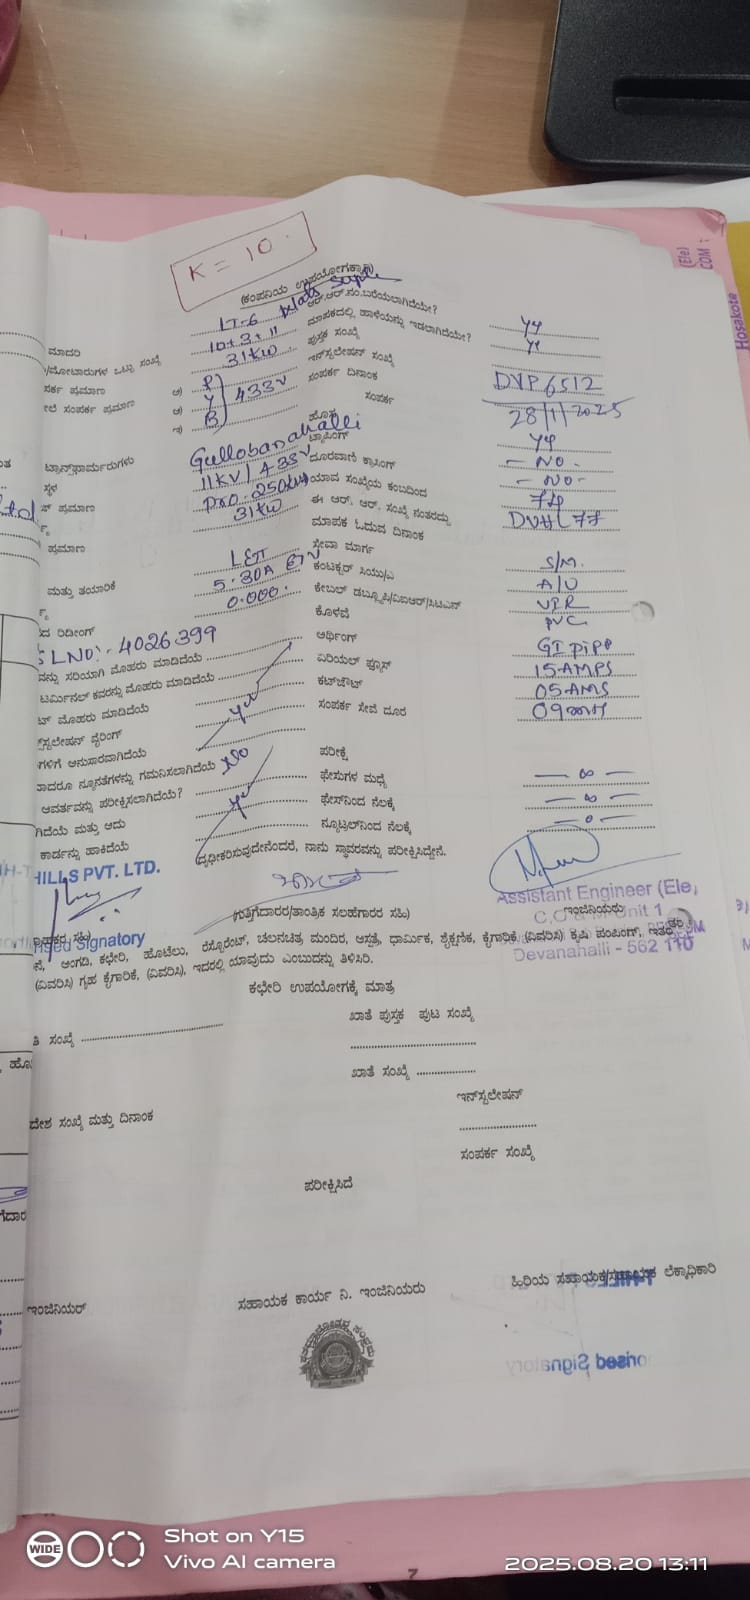 K = 10.
(ಕಂಪನಿಯ ಉಪಯೋಗಕ್ಕಾಗಿ)
LT-6
ಆರ್.ಆರ್.ನಂ.ಬರೆಯಲಾಗಿದೆಯೇ?
ಮಾದರಿ 10+3+11 ಮಾಪಕದಲ್ಲಿ ಹಾಳೆಯನ್ನು ಇಡಲಾಗಿದೆಯೇ?
/ಮೋಟಾರುಗಳ ಒಟ್ಟು ಸಂಖ್ಯೆ 31KW ಪುಸ್ತಕ ಸಂಖ್ಯೆ
ಸರ್ಕ ಪ್ರಮಾಣ ಅ) R ಇನ್‌ಸ್ಟಲೇಷನ್ ಸಂಖ್ಯೆ DVP6512
ಲೆ ಸಂಪರ್ಕ ಪ್ರಮಾಣ ಆ) Y 433V ಸಂಪರ್ಕ ದಿನಾಂಕ 28/1/2025
ಇ) B ಸಂಪರ್ಕ
ಹೊಸ
ಟ್ರಾನ್ಸ್‌ಫಾರ್ಮರುಗಳು Gullobanahalli ಟ್ಯಾಪಿಂಗ್ - NO -
ಸ್ಥಳ 11KV / 433V ದೂರವಾಣಿ ಕ್ರಾಸಿಂಗ್ - NO -
ಪ್ರಮಾಣ ಯಾವ ಸಂಖ್ಯೆಯ ಕಂಬದಿಂದ
31KW ಈ ಆರ್. ಆರ್. ಸಂಖ್ಯೆ ನಂತರದ್ದು DVHL77
ಪ್ರಮಾಣ ಮಾಪಕ ಓದುವ ದಿನಾಂಕ
L&T ಸೇವಾ ಮಾರ್ಗ S/M.
ಮತ್ತು ತಯಾರಿಕೆ 5-30A ಕಂಟಕ್ಟರ್ ಸಿಯು/ಎ A/U
0.000. ಕೇಬಲ್ ಡಬ್ಲೂಪಿ/ವಿಐಆರ್/ಸಿಟಿಎನ್ VIR
ದ ರಿಡೀಂಗ್ ಕೊಳವೆ PVC
SLNO:- 4026399 ಅರ್ಥಿಂಗ್ GI PIPE
ವನ್ನು ಸರಿಯಾಗಿ ಮೊಹರು ಮಾಡಿದೆಯೆ ಏರಿಯಲ್ ಫ್ಯೂಸ್ 15AMPS
ಟರ್ಮಿನಲ್ ಕವರನ್ನು ಮೊಹರು ಮಾಡಿದೆಯೆ ಕಟ್‌ಔಟ್ 05AMS
ಟ್ ಮೊಹರು ಮಾಡಿದೆಯೆ yes ಸಂಪರ್ಕ ಸೇವೆ ದೂರ
ಸ್ಟಲೇಷನ್ ವೈರಿಂಗ್
ಗಳಿಗೆ ಅನುಸಾರವಾಗಿದೆಯೆ ಪರೀಕ್ಷೆ
ಾದರೂ ನ್ಯೂನತೆಗಳನ್ನು ಗಮನಿಸಲಾಗಿದೆಯೆ No ಫೇಸುಗಳ ಮಧ್ಯೆ — ∞ —
ಆವರ್ತವನ್ನು ಪರೀಕ್ಷಿಸಲಾಗಿದೆಯೆ? yes ಫೇಸ್‌ನಿಂದ ನೆಲಕ್ಕೆ — ∞ —
ಗಿದೆಯೆ ಮತ್ತು ಅದು ನ್ಯೂಟ್ರಲ್‌ನಿಂದ ನೆಲಕ್ಕೆ — 0 —
ಕಾರ್ಡನ್ನು ಹಾಕಿದೆಯೆ ದೃಢೀಕರಿಸುವುದೇನೆಂದರೆ, ನಾನು ಸ್ಥಾವರವನ್ನು ಪರೀಕ್ಷಿಸಿದ್ದೇನೆ.
HILLS PVT. LTD.
Assistant Engineer (Ele)
(ಗುತ್ತಿಗೆದಾರರ/ತಾಂತ್ರಿಕ ಸಲಹೆಗಾರರ ಸಹಿ) ಇಂಜಿನಿಯರು
Unit 1
Signatory
ನೆ, ಅಂಗಡಿ, ಕಛೇರಿ, ಹೊಟೆಲು, ರೆಸ್ಟೊರೆಂಟ್, ಚಲನಚಿತ್ರ ಮಂದಿರ, ಆಸ್ಪತ್ರೆ, ಧಾರ್ಮಿಕ, ಶೈಕ್ಷಣಿಕ, ಕೈಗಾರಿಕೆ (ವಿವರಿಸಿ) ಕೃಷಿ ಪಂಪಿಂಗ್, ಇತರೆ
(ವಿವರಿಸಿ) ಗೃಹ ಕೈಗಾರಿಕೆ, (ವಿವರಿಸಿ), ಇದರಲ್ಲಿ ಯಾವುದು ಎಂಬುದನ್ನು ತಿಳಿಸಿರಿ.
Devanahalli - 562 110
ಕಛೇರಿ ಉಪಯೋಗಕ್ಕೆ ಮಾತ್ರ
ತಿ ಸಂಖ್ಯೆ ಖಾತೆ ಪುಸ್ತಕ ಪುಟ ಸಂಖ್ಯೆ
ಖಾತೆ ಸಂಖ್ಯೆ
ಇನ್‌ಸ್ಟಲೇಷನ್
ದೇಶ ಸಂಖ್ಯೆ ಮತ್ತು ದಿನಾಂಕ
ಸಂಪರ್ಕ ಸಂಖ್ಯೆ
ಪರೀಕ್ಷಿಸಿದೆ
ಇಂಜಿನಿಯರ್ ಸಹಾಯಕ ಕಾರ್ಯ ನಿ. ಇಂಜಿನಿಯರು ಹಿರಿಯ ಸಹಾಯಕ/ಸಹಾಯಕ ಲೆಕ್ಕಾಧಿಕಾರಿ
Hosakote
(Ele)
COM
WIDE
Shot on Y15
Vivo AI camera
2025.08.20 13:11